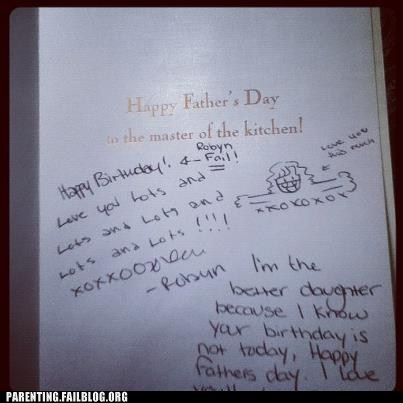 Happy Father's Day
to the master of the kitchen!
Happy Birthday! ← Robyn Fail!
Love you Lots and
Lots and Lots and
Lots and Lots !!!!
xoxxoo
- Robyn
Love you this much
xxoxoxox
I'm the
better daughter
because I know
your birthday is
not today, Happy
Fathers day. I love
PARENTING.FAILBLOG.ORG